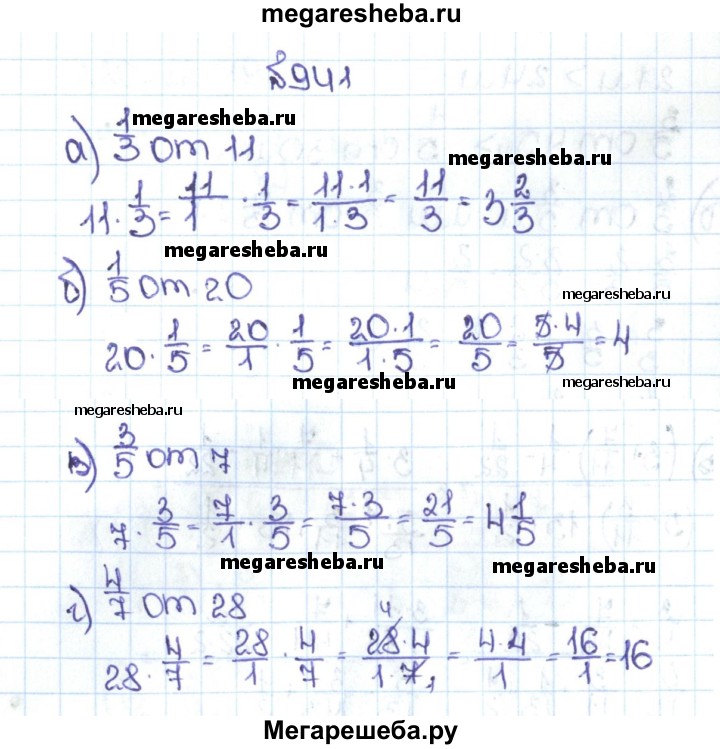 megaresheba.ru
№941
megaresheba.ru
а) 1/3 от 11
megaresheba.ru
11 · 1/3 = 11/1 · 1/3 = 11·1/1·3 = 11/3 = 3 2/3
megaresheba.ru
б) 1/5 от 20
megaresheba.ru
20 · 1/5 = 20/1 · 1/5 = 20·1/1·5 = 20/5 = 5·4/5 = 4
megaresheba.ru
megaresheba.ru
megaresheba.ru
в) 3/5 от 7
7 · 3/5 = 7/1 · 3/5 = 7·3/5 = 21/5 = 4 1/5
megaresheba.ru
megaresheba.ru
г) 4/7 от 28
28 · 4/7 = 28/1 · 4/7 = 28 4 ·4/1·7 1 = 4·4/1 = 16/1 = 16
Мегарешеба.ру